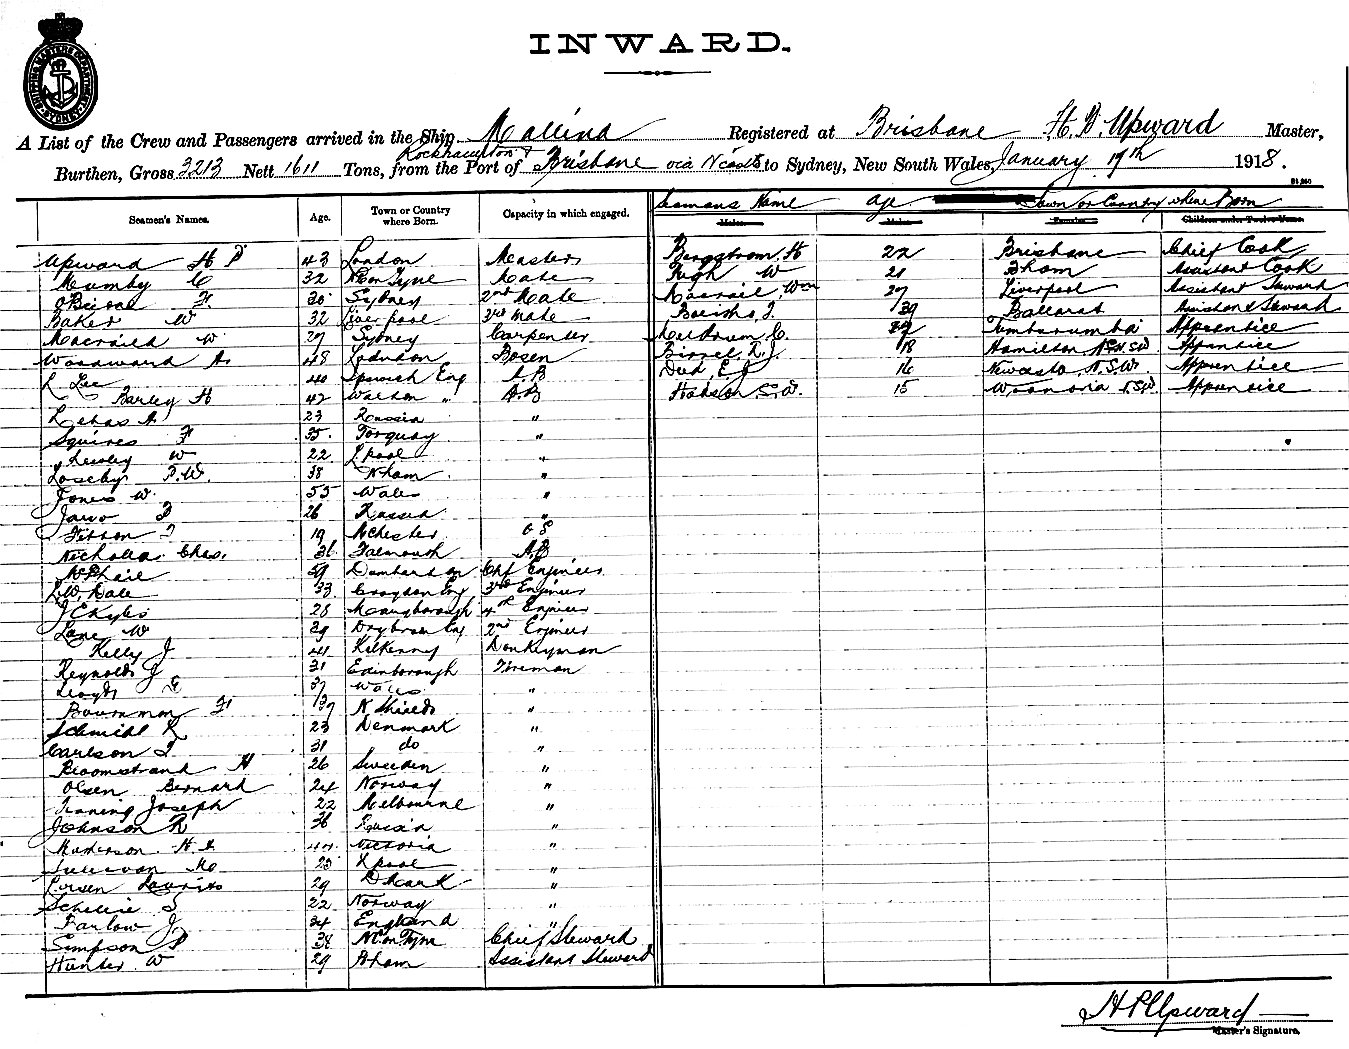 SHIPPING MASTERS DEPARTMENT SYDNEY
INWARD.
A List of the Crew and Passengers arrived in the Ship Mallina Registered at Brisbane H. D. Upward Master,
Burthen, Gross 3213 Nett 1611 Tons, from the Port of Rockhampton & Brisbane via N'castle to Sydney, New South Wales, January 19th 1918.
Seamen's Names. Age. Town or Country where Born. Capacity in which engaged. Seamans Name Age Town or Country where Born
Males. Males. Females. Children under Twelve Years.
Upward H P 43 London Master Bergstrom H 22 Brisbane Chief Cook
Mumby C 32 N on Tyne Mate Pugh W 21 Bham Assistant Cook
O'Brien F. 30 Sydney 2nd Mate Macrail Wm 27 Liverpool Assistant Steward
Baker W 32 Liverpool 3rd Mate J. 39 Ballarat Assistant Steward
Macraild W 27 Sydney Carpenter Meldrum C. Tumbarumba Apprentice
Woodward A. 48 London Bosen R. J. 18 Hamilton N.S.W Apprentice
R Lee 40 Ipswich Eng A.B Died E J 16 Newcastle N.S.W. Apprentice
Barley H 42 Walton " A.B Hobson S.W. 15 Woonona N.S.W Apprentice
A 23 Russia "
Squires F 35. Torquay "
Lessley W 22 Lpool "
Loseby P.W. 38 Nham "
Jones W. 55 Wales "
Jarvo 26 Russia "
Fitton J 19 Mchester O S
Nicholla Chas. 36 Falmouth A.B
McPhail 59 Dumbarton Chf Engineer
L.W. Dale 33 Croydon Eng 3rd Engineer
J E Kyles 28 Maryborough 4th Engineer
Lane W 39 Eng 2nd Engineer
Kelly J 41 Kilkenny Donkeyman
Reynolds J 31 Edinborough Fireman
Lloyd E 37 Wales "
Bowman F 37 N Shields "
Schmidt R 23 Denmark "
Carlson J 31 do "
Bloomstrand H 26 Sweden "
Olsen Bernard 24 Norway "
Joseph 22 Melbourne "
Johnson R 36 Russia "
H. Victoria "
Sullivan Mo 25 Lpool "
Larsen Laurits 29 Dmark "
S 22 Norway "
Farlow J 34 England "
Simpson P 38 N C on Tyne Chief Steward
Hunter W 29 Bham Assistant Steward
H P Upward
Master's Signature.